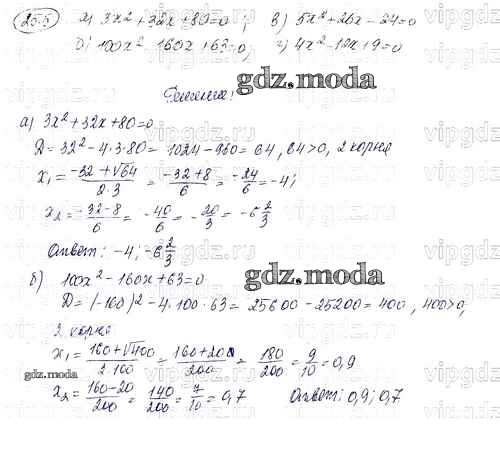 25.5 а) 3x² + 32x + 80 = 0 ; в) 5x² + 26x - 24 = 0
б) 100x² - 160x + 63 = 0, г) 4x² - 12x + 9 = 0
gdz.moda
Решение:
а) 3x² + 32x + 80 = 0
D = 32² - 4·3·80 = 1024 - 960 = 64, 64 > 0, 2 корня
x₁ = (-32 + √64)/(2·3) = (-32 + 8)/6 = -24/6 = -4;
x₂ = (-32 - 8)/6 = -40/6 = -20/3 = -6 2/3
Ответ: -4; -6 2/3
gdz.moda
б) 100x² - 160x + 63 = 0
D = (-160)² - 4·100·63 = 25600 - 25200 = 400, 400 > 0,
2 корня
x₁ = (160 + √400)/(2·100) = (160 + 20)/200 = 180/200 = 9/10 = 0,9
gdz.moda
x₂ = (160 - 20)/200 = 140/200 = 7/10 = 0,7 Ответ: 0,9; 0,7